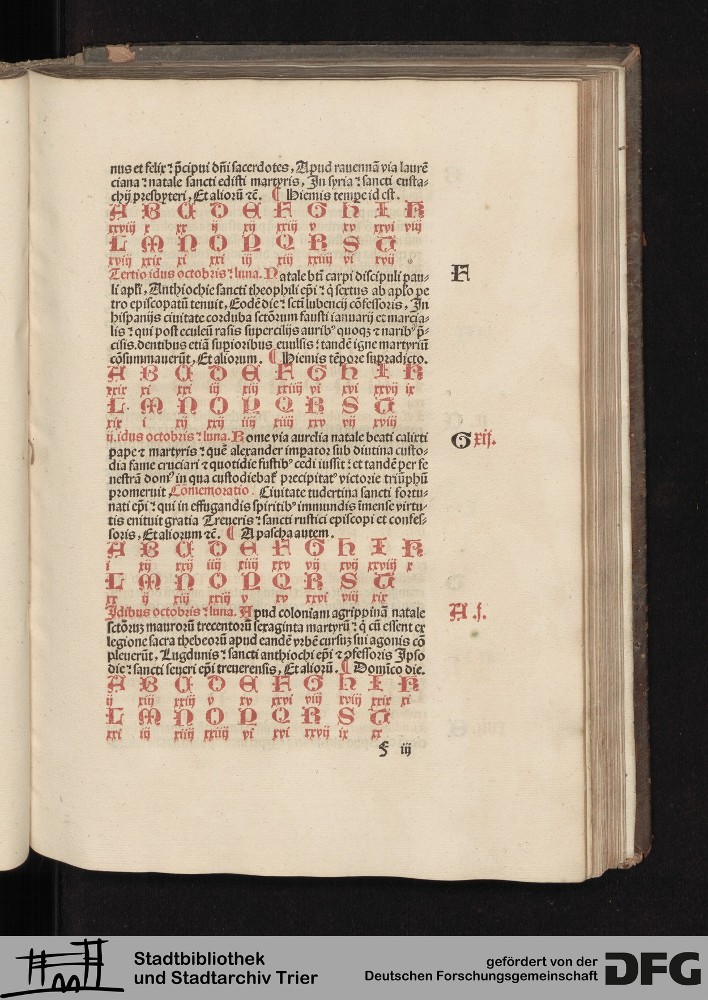 nus et felix ⁊ p̄cipui dn̄i sacerdotes, Apud rauennā via laurē
ciana ⁊ natale sancti edisti martyris, In syria ⁊ sancti eusta-
chij presbyteri, Et aliorū ⁊c̄. ¶ Hiemis tempe id est.
A B C D E F G H I K
xxviij x xx ij xij xxiij v xv xxvi viij
L M N O P Q R S T
xviij xxix xi xxi iij xiij xxiiij vi xvij
Tertio idus octobris ⁊ luna. Natale bti carpi discipuli pau-
li apli, Anthiochie sancti theophili ep̄i ⁊ q̄ sextus ab aplo pe
tro episcopatū tenuit, Eodē die ⁊ scti lubencij cōfessoris, In
hispanijs ciuitate corduba sctōrum fausti ianuarij et marcia-
lis ⁊ qui post eculeū rasis supercilijs aurib⁹ quoqꝫ ⁊ narib⁹ p̄-
cisis. dentibus etiā supioribus euulsis ⁊ tandē igne martyriū
cōsummauerūt, Et aliorum. ¶ Hiemis tēpore supradicto.
A B C D E F G H I K
xxix xi xxi iij xiij xxiiij vi xvi xxvij ix
L M N O P Q R S T
xix i xij xxij iiij xiiij xxv vij xviij
ij. idus octobris ⁊ luna. Rome via aurelia natale beati calixti
pape ⁊ martyris ⁊ quē alexander impator sub diutina custo-
dia fame cruciari ⁊ quotidie fustib⁹ cedi iussit ⁊ et tandē per fe
nestrā dom⁹ in qua custodiebat̄ precipitat⁹ victorie triūphū
promeruit, Conmemoratio. Ciuitate tudertina sancti fortu-
nati ep̄i ⁊ qui in effugandis spiritib⁹ immundis īmense virtu-
tis enituit gratia Treueris ⁊ sancti rustici episcopi et confes-
soris, Et aliorum ⁊c̄. ¶ A pascha autem.
A B C D E F G H I K
i xij xxij iiij xiiij xxv vij xvij xxviij x
L M N O P Q R S T
xx ij xiij xxiij v xv xxvi viij xix
Idibus octobris ⁊ luna. Apud coloniam agrippinā natale
sctōrꝫ maurorū trecentorū sexaginta martyrū ⁊ q̄ cū essent ex
legione sacra thebeorū apud eandē vrbē cursuꝫ sui agonis cō
pleuerūt, Lugdunis ⁊ sancti anthiochi ep̄i ⁊ ꝯfessoris Ipso
die ⁊ sancti seueri ep̄i treuerensis, Et aliorū. ¶ Domīco die.
A B C D E F G H I K
ij xiij xxiij v xv xxvi viij xviij xxix xi
L M N O P Q R S T
xxi iij xiiij xxiiij vi xvi xxvij ix xx
F
G xij.
A .j.
iij
Stadtbibliothek
und Stadtarchiv Trier
gefördert von der
Deutschen Forschungsgemeinschaft
DFG